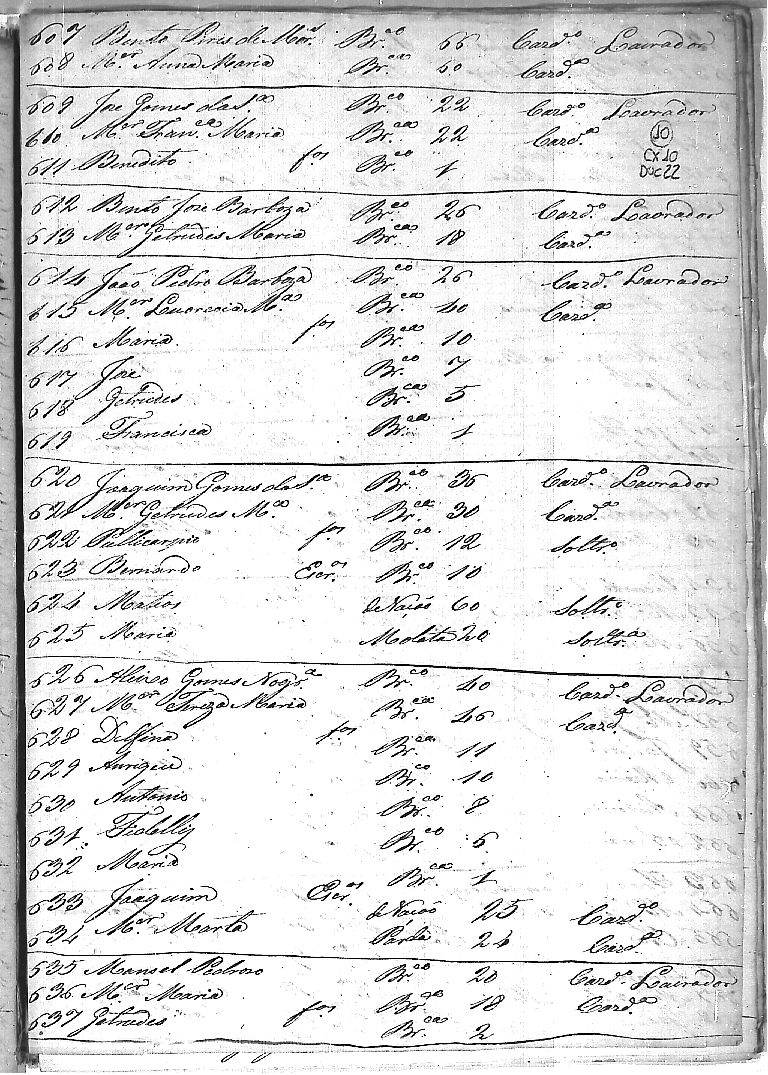 607 Bento Pires de Mor.s Br.co 66 Cazd.o Lavrador
608 M.er Anna Maria Br.ca 60 Cazd.a
609 Joze Gomes da S.a Br.co 22 Cazd.o Lavrador
610 M.er Fran.ca Maria Br.ca 22 Cazd.a
611 Benedito f.os Br.co 1
10
CX10
DOC22
612 Bento Joze Barboza Br.co 26 Cazd.o Lavrador
613 M.er Getrudes Maria Br.ca 18 Cazd.a
614 João Pedro Barboza Br.co 26 Cazd.o Lavrador
615 M.er Lucrecia M.a Br.ca 40 Cazd.a
616 Maria f.os Br.ca 10
617 Joze Br.co 7
618 Getrudes Br.ca 5
619 Francisca Br.ca 1
620 Joaquim Gomes da S.a Br.co 36 Cazd.o Lavrador
621 M.er Getrudes M.a Br.ca 30 Cazd.a
622 Pullicarpio f.os Br.co 12 Soltr.o
623 Bernardo Escr.os Br.co 10
624 Mateos de Nação 60 Soltr.o
625 Maria Molata 20 Soltr.a
626 Gomes Nogr.a Br.co 40 Cazd.o Lavrador
627 M.er Tereza Maria Br.ca 46 Cazd.a
628 Delfina f.os Br.ca 11
629 Br.co 10
630 Antonio Br.co 8
631 Fidellis Br.co 6
632 Maria Br.ca 1
633 Joaquim Escr.os de Nação 25 Cazd.o
634 M.er Marta Parda 24 Cazd.a
635 Manoel Pedrozo Br.co 20 Cazd.o Lavrador
636 M.er Maria Br.ca 18 Cazd.a
637 Getrudes f.os Br.ca 2